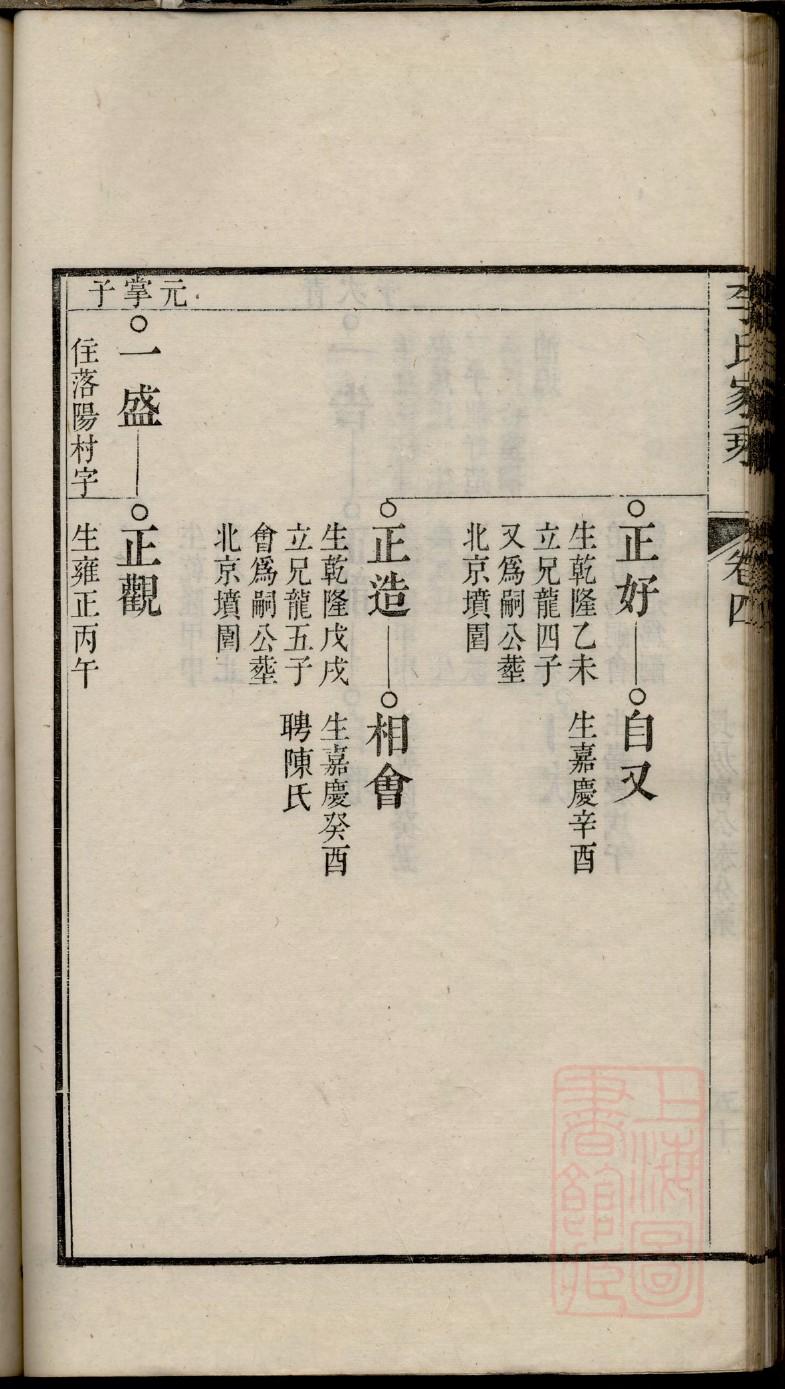 李氏家乘
卷四
正好
生乾隆乙未
立兄龍四子
又爲嗣公塟
北京墳圍
自又
生嘉慶辛酉
正造
生乾隆戊戌
立兄龍五子
會爲嗣公塟
北京墳圍
相會
生嘉慶癸酉
聘陳氏
元掌子
一盛
住落陽村字
正觀
生雍正丙午
上海圖
書館藏